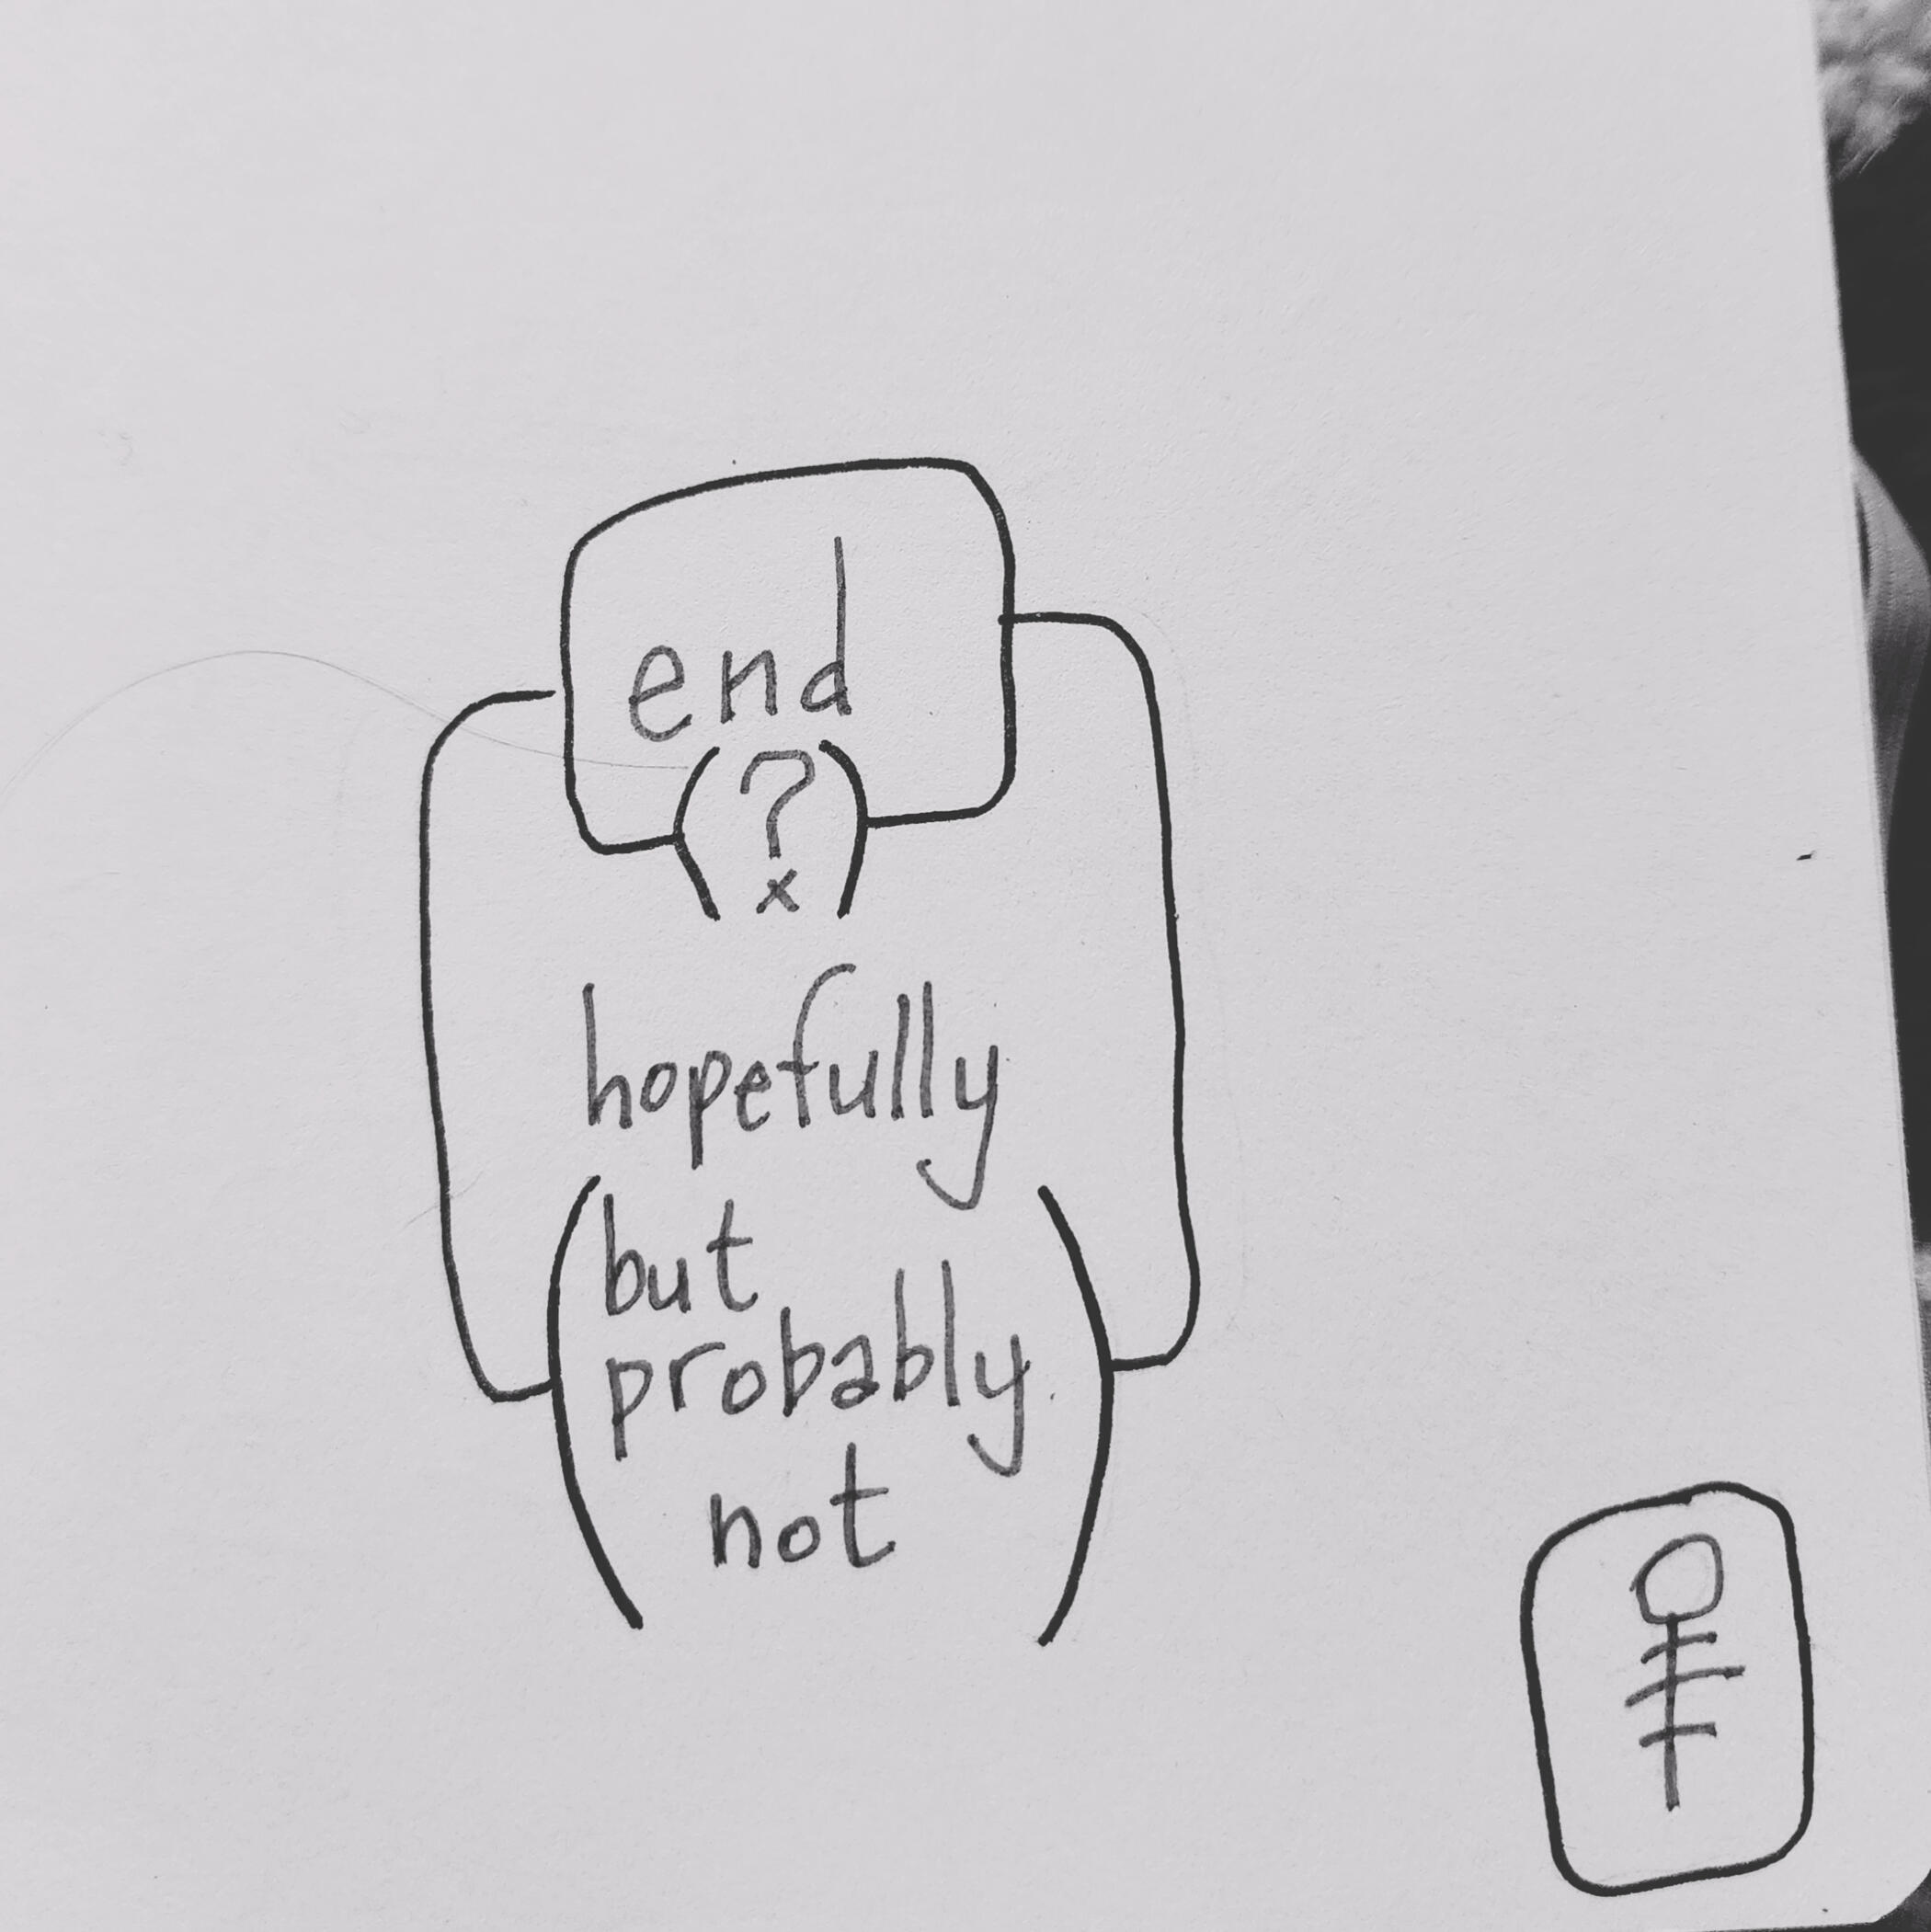 end
(?)
hopefully
(but
probably
not)